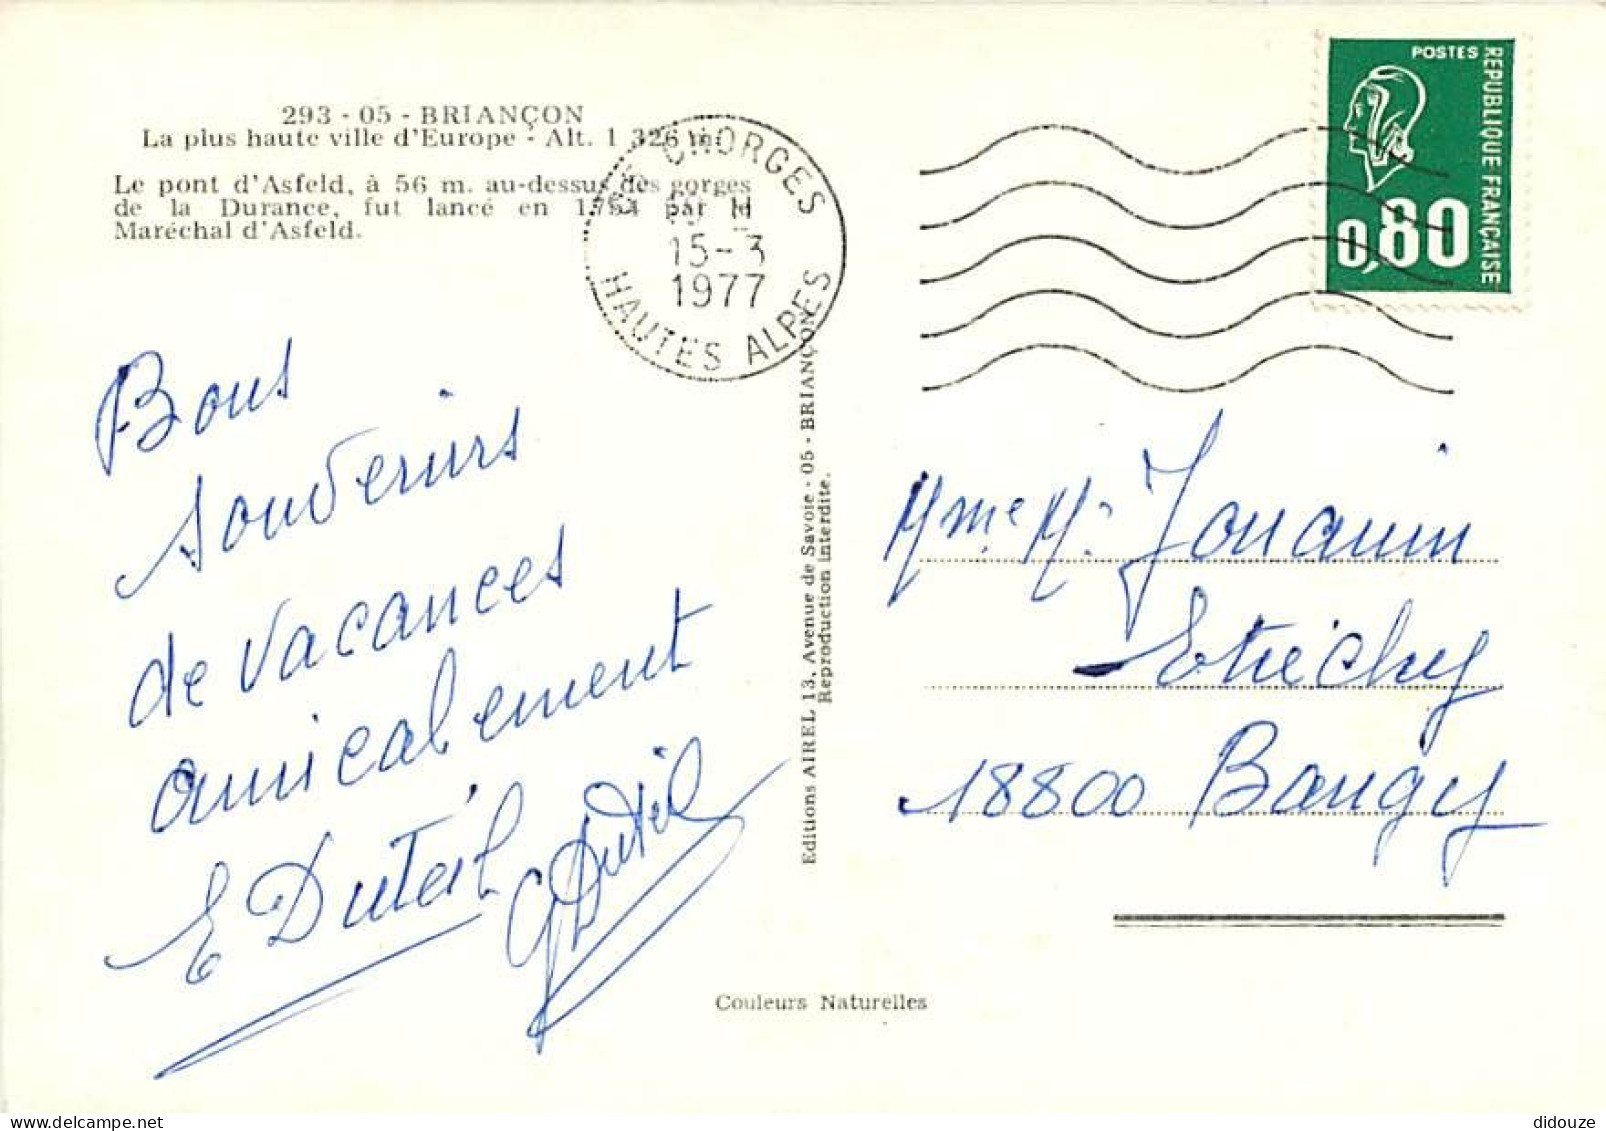 293 - 05 - BRIANÇON
La plus haute ville d'Europe - Alt. 1 326 m.
Le pont d'Asfeld, à 56 m. au-dessus des gorges
de la Durance, fut lancé en 1754 par le
Maréchal d'Asfeld.
CHORGES
15-3
1977
HAUTES ALPES
POSTES
REPUBLIQUE FRANÇAISE
0,80
Bons
souvenirs
de vacances
amicalement
E Duteil G Duteil
Editions AIREL 13, Avenue de Savoie - 05 - BRIANÇON
Reproduction interdite.
Mme M. Jouanin
Etréchy
18800 Baugy
Couleurs Naturelles
didouze